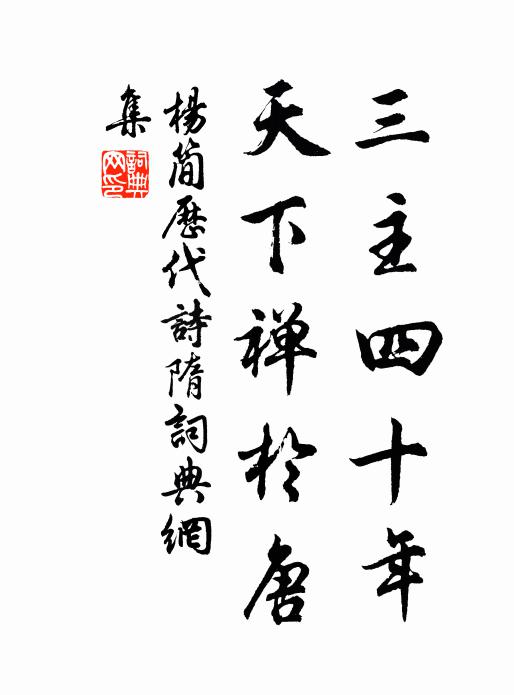 三主四十年
天下禅於唐
楊簡歷代詩隋詞典網
集
詞典
网印